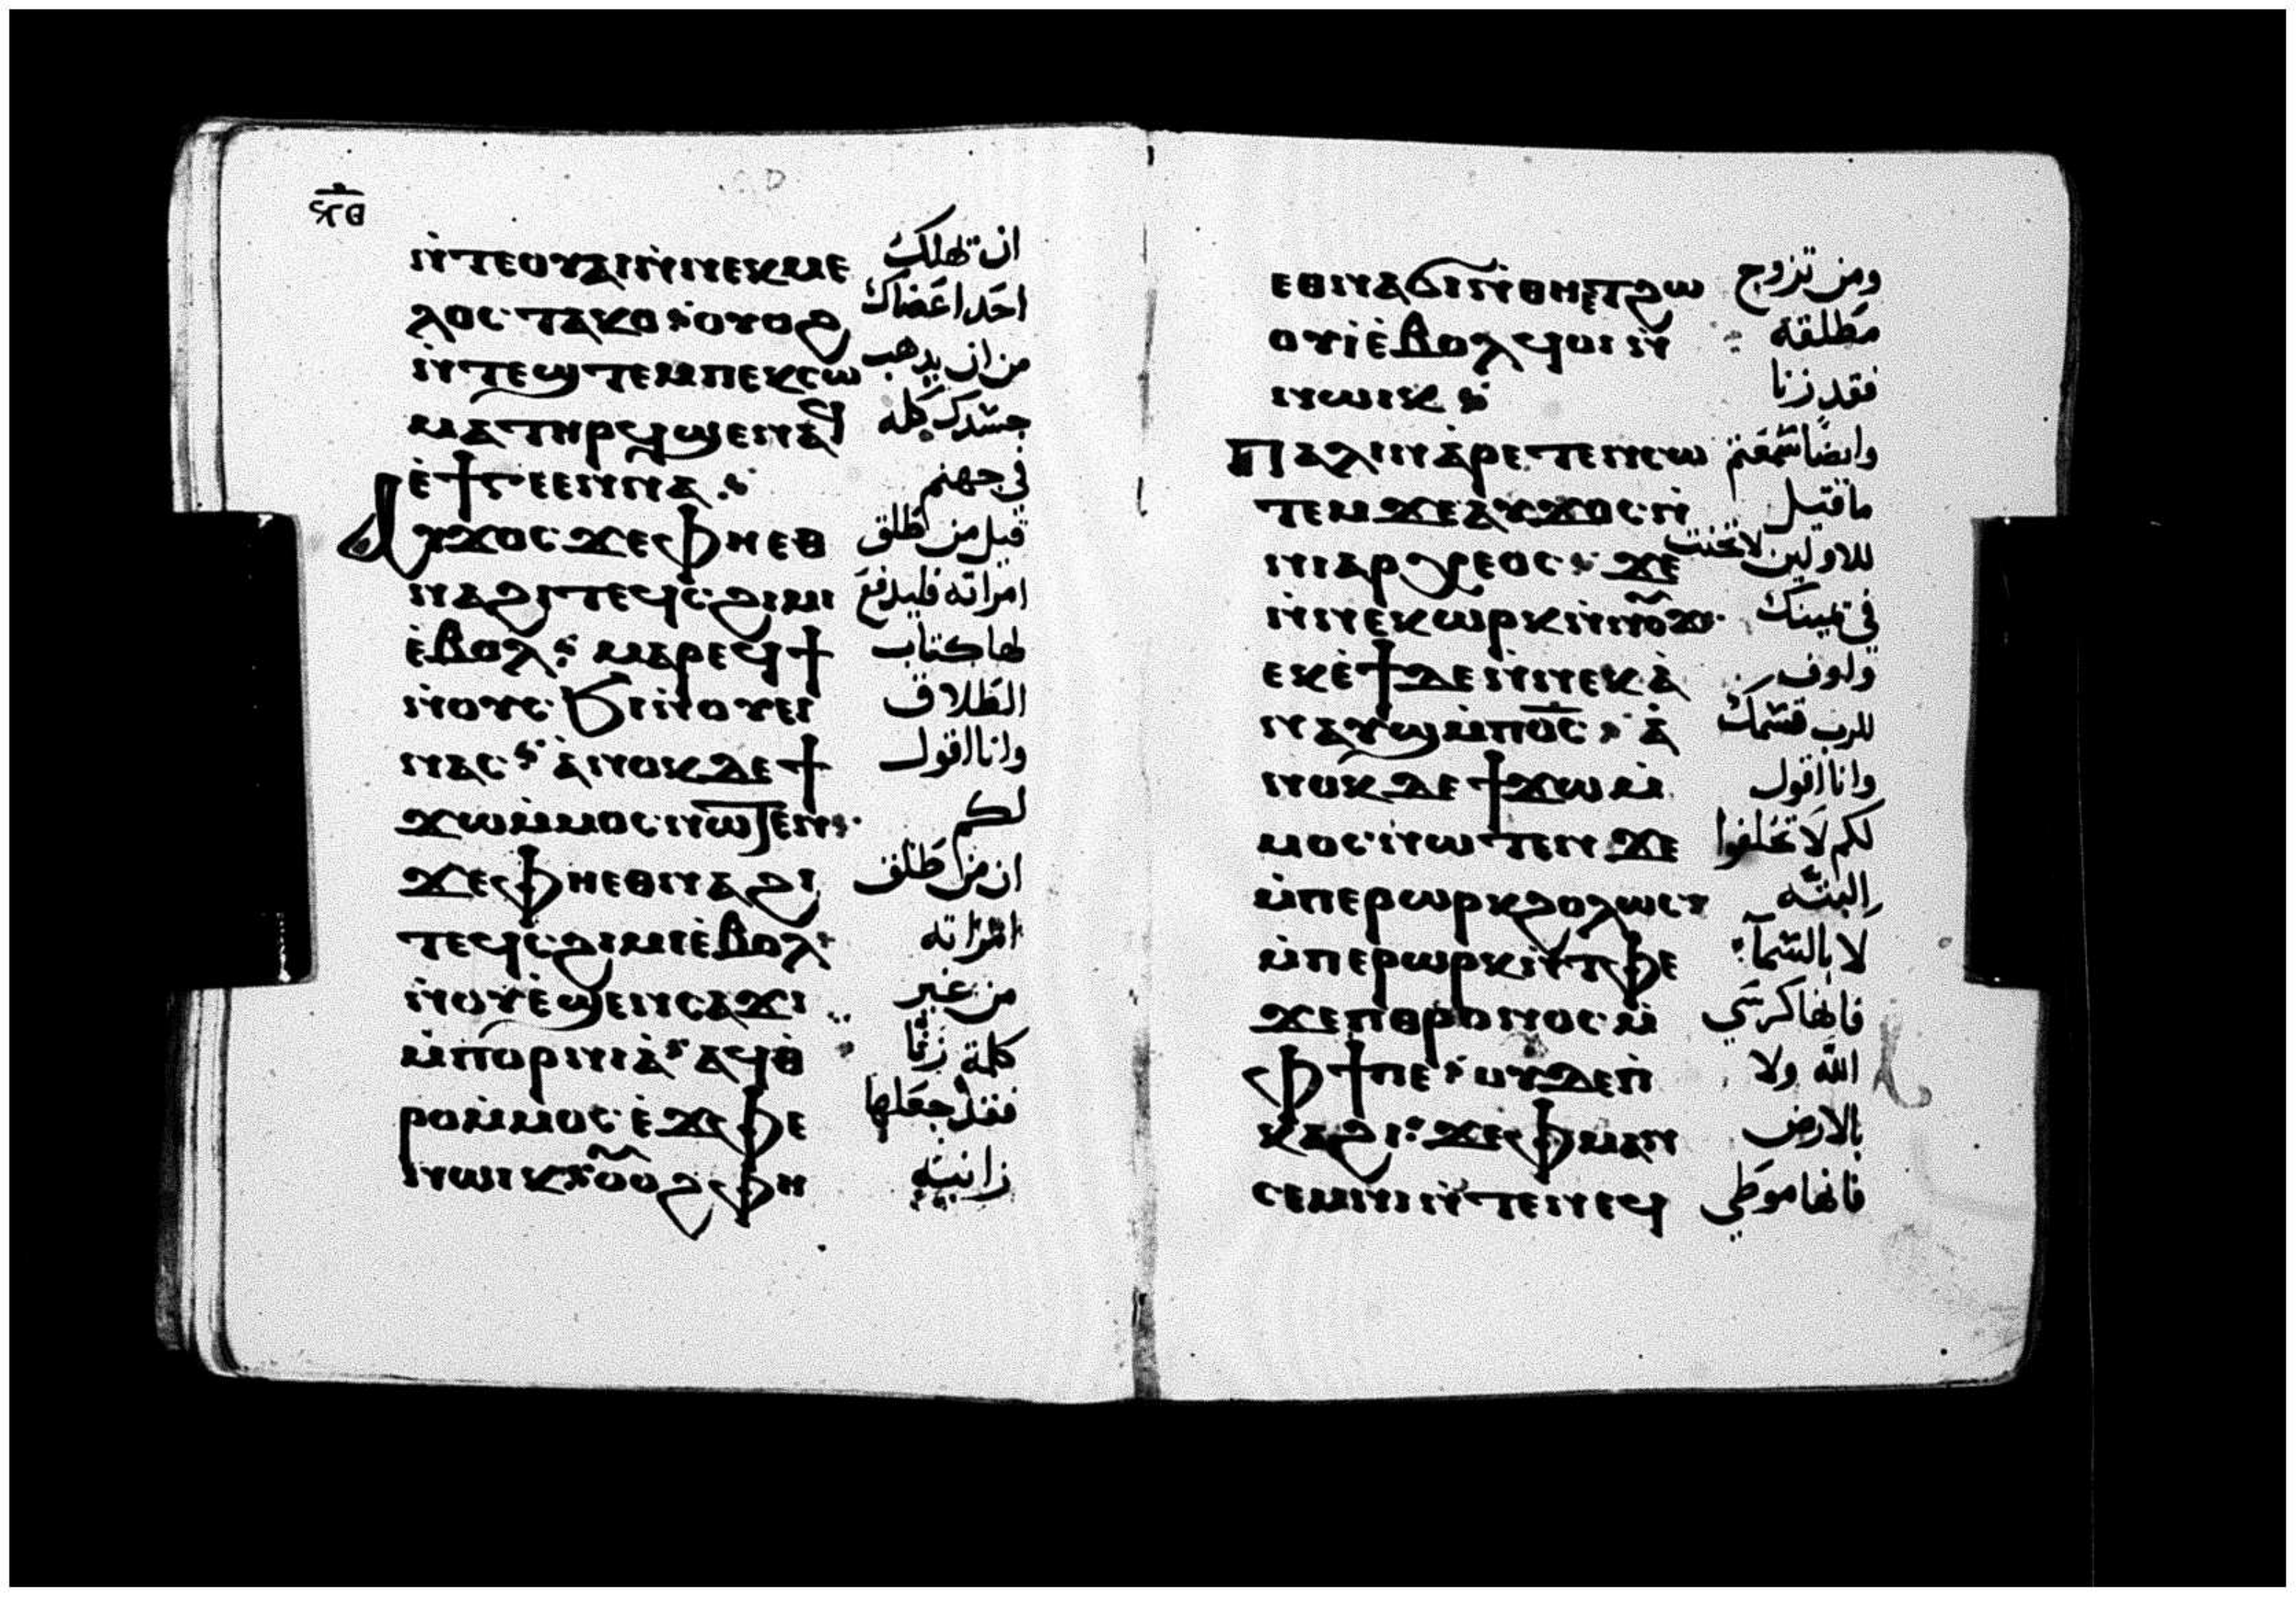 ⲛ̀ⲧⲉⲟⲩⲁⲓⲛ̀ⲛⲉⲕⲙⲉ ان تهلك
ⲗⲟⲥ ⲧⲁⲕⲟ ⲟⲩⲟϩ احد اعضاك
ⲛ̀ⲧⲉϣⲧⲉⲙⲡⲉⲕⲥⲱ من ان يدهب
ⲙⲁⲧⲏⲣϥϣⲉⲛⲁϥ جسدك كله
ⲉ̀ϯⲅⲉⲉⲛⲛⲁ في جهنم
ⲁⲩϫⲟⲥ ϫⲉⲫⲏⲉⲑ قيل من طلق
ⲛⲁϩⲓⲧⲉϥⲥϩⲓⲙⲓ امراته فليدفع
ⲉ̀ⲃⲟⲗ ⲙⲁⲣⲉϥϯ لها كتاب
ⲛ̀ⲟⲩⲥϧⲓⲛ̀ⲟⲩⲉⲓ الطلاق
ⲛⲁⲥ ⲁ̀ⲛⲟⲕⲇⲉϯ وانا اقول
ϫⲱⲙ̀ⲙⲟⲥⲛⲱⲧⲉⲛ لكم
ϫⲉⲫⲏⲉⲑⲛⲁϩⲓ ان من طلق
ⲧⲉϥⲥϩⲓⲙⲓⲉ̀ⲃⲟⲗ امراته
ⲛ̀ⲟⲩⲉ̀ϣⲉⲛⲥⲁϫⲓ من غير
ⲙ̀ⲡⲟⲣⲛⲓⲁ̀ ⲁϥⲑ̀ كلمة زنا
ⲣⲟⲙ̀ⲙⲟⲥ ⲉ̀ϫⲉⲫⲉ فقد جعلها
ⲛⲱⲓⲕ ⲟ̅ⲟϩ ⲫⲏ زانيه
ⲉⲑⲛⲁϭⲓⲛ̀ⲑⲏⲉⲧϩⲱ ومن تزوج
ⲟⲩⲓ̀ⲉ̀ⲃⲟⲗ ϥⲟⲓ ⲛ̀ مطلقة
ⲛⲱⲓⲕ فقد زنا
ⲡⲁⲗⲓⲛⲁ̀ⲣⲉⲧⲉⲛⲥⲱ وايضا سمعتم
ⲧⲉⲙ ϫⲉⲁⲩϫⲟⲥ ⲛ̀ ما قيل
ⲛⲓⲁⲣⲭⲉⲟⲥ ϫⲉ للاولين لا تحنت
ⲛ̀ⲛⲉⲕⲱⲣⲕⲛ̀ⲛⲟⲩϫ في يمينك
ⲉⲕⲉ̀ϯⲇⲉⲛ̀ⲛⲉⲕⲁ̀ واوف
ⲛⲁⲩϣⲙ̀ⲡⲟ̅ⲥ̅ ⲁ̀ للرب قسمك
ⲛⲟⲕⲇⲉϯϫⲱⲙ̀ وانا اقول
ⲙⲟⲥⲛⲱⲧⲉⲛ ϫⲉ لكم لا تحلفوا
ⲙ̀ⲡⲉⲣⲱⲣⲕϩⲟⲗⲱⲥ البتة
ⲙ̀ⲡⲉⲣⲱⲣⲕⲛ̀ⲧⲫⲉ لا بالسمآء
ϫⲉⲡⲑⲣⲟⲛⲟⲥⲙ̀ فانها كرسي
ⲫϯⲡⲉ ⲟⲩⲇⲉⲡ̀ الله ولا
ⲕⲁϩⲓ ϫⲉⲫⲙⲁⲛ بالارض
ⲥⲉⲙⲛⲓⲛ̀ⲧⲉⲛⲉϥ فانها موطي